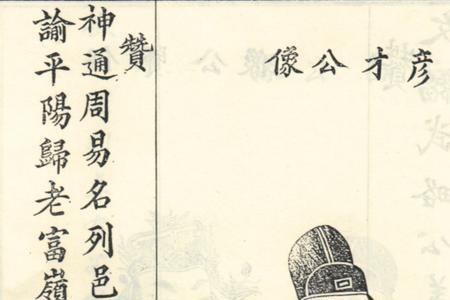 彦才公像
贊
神通周易名列邑
諭平陽歸老富嶺